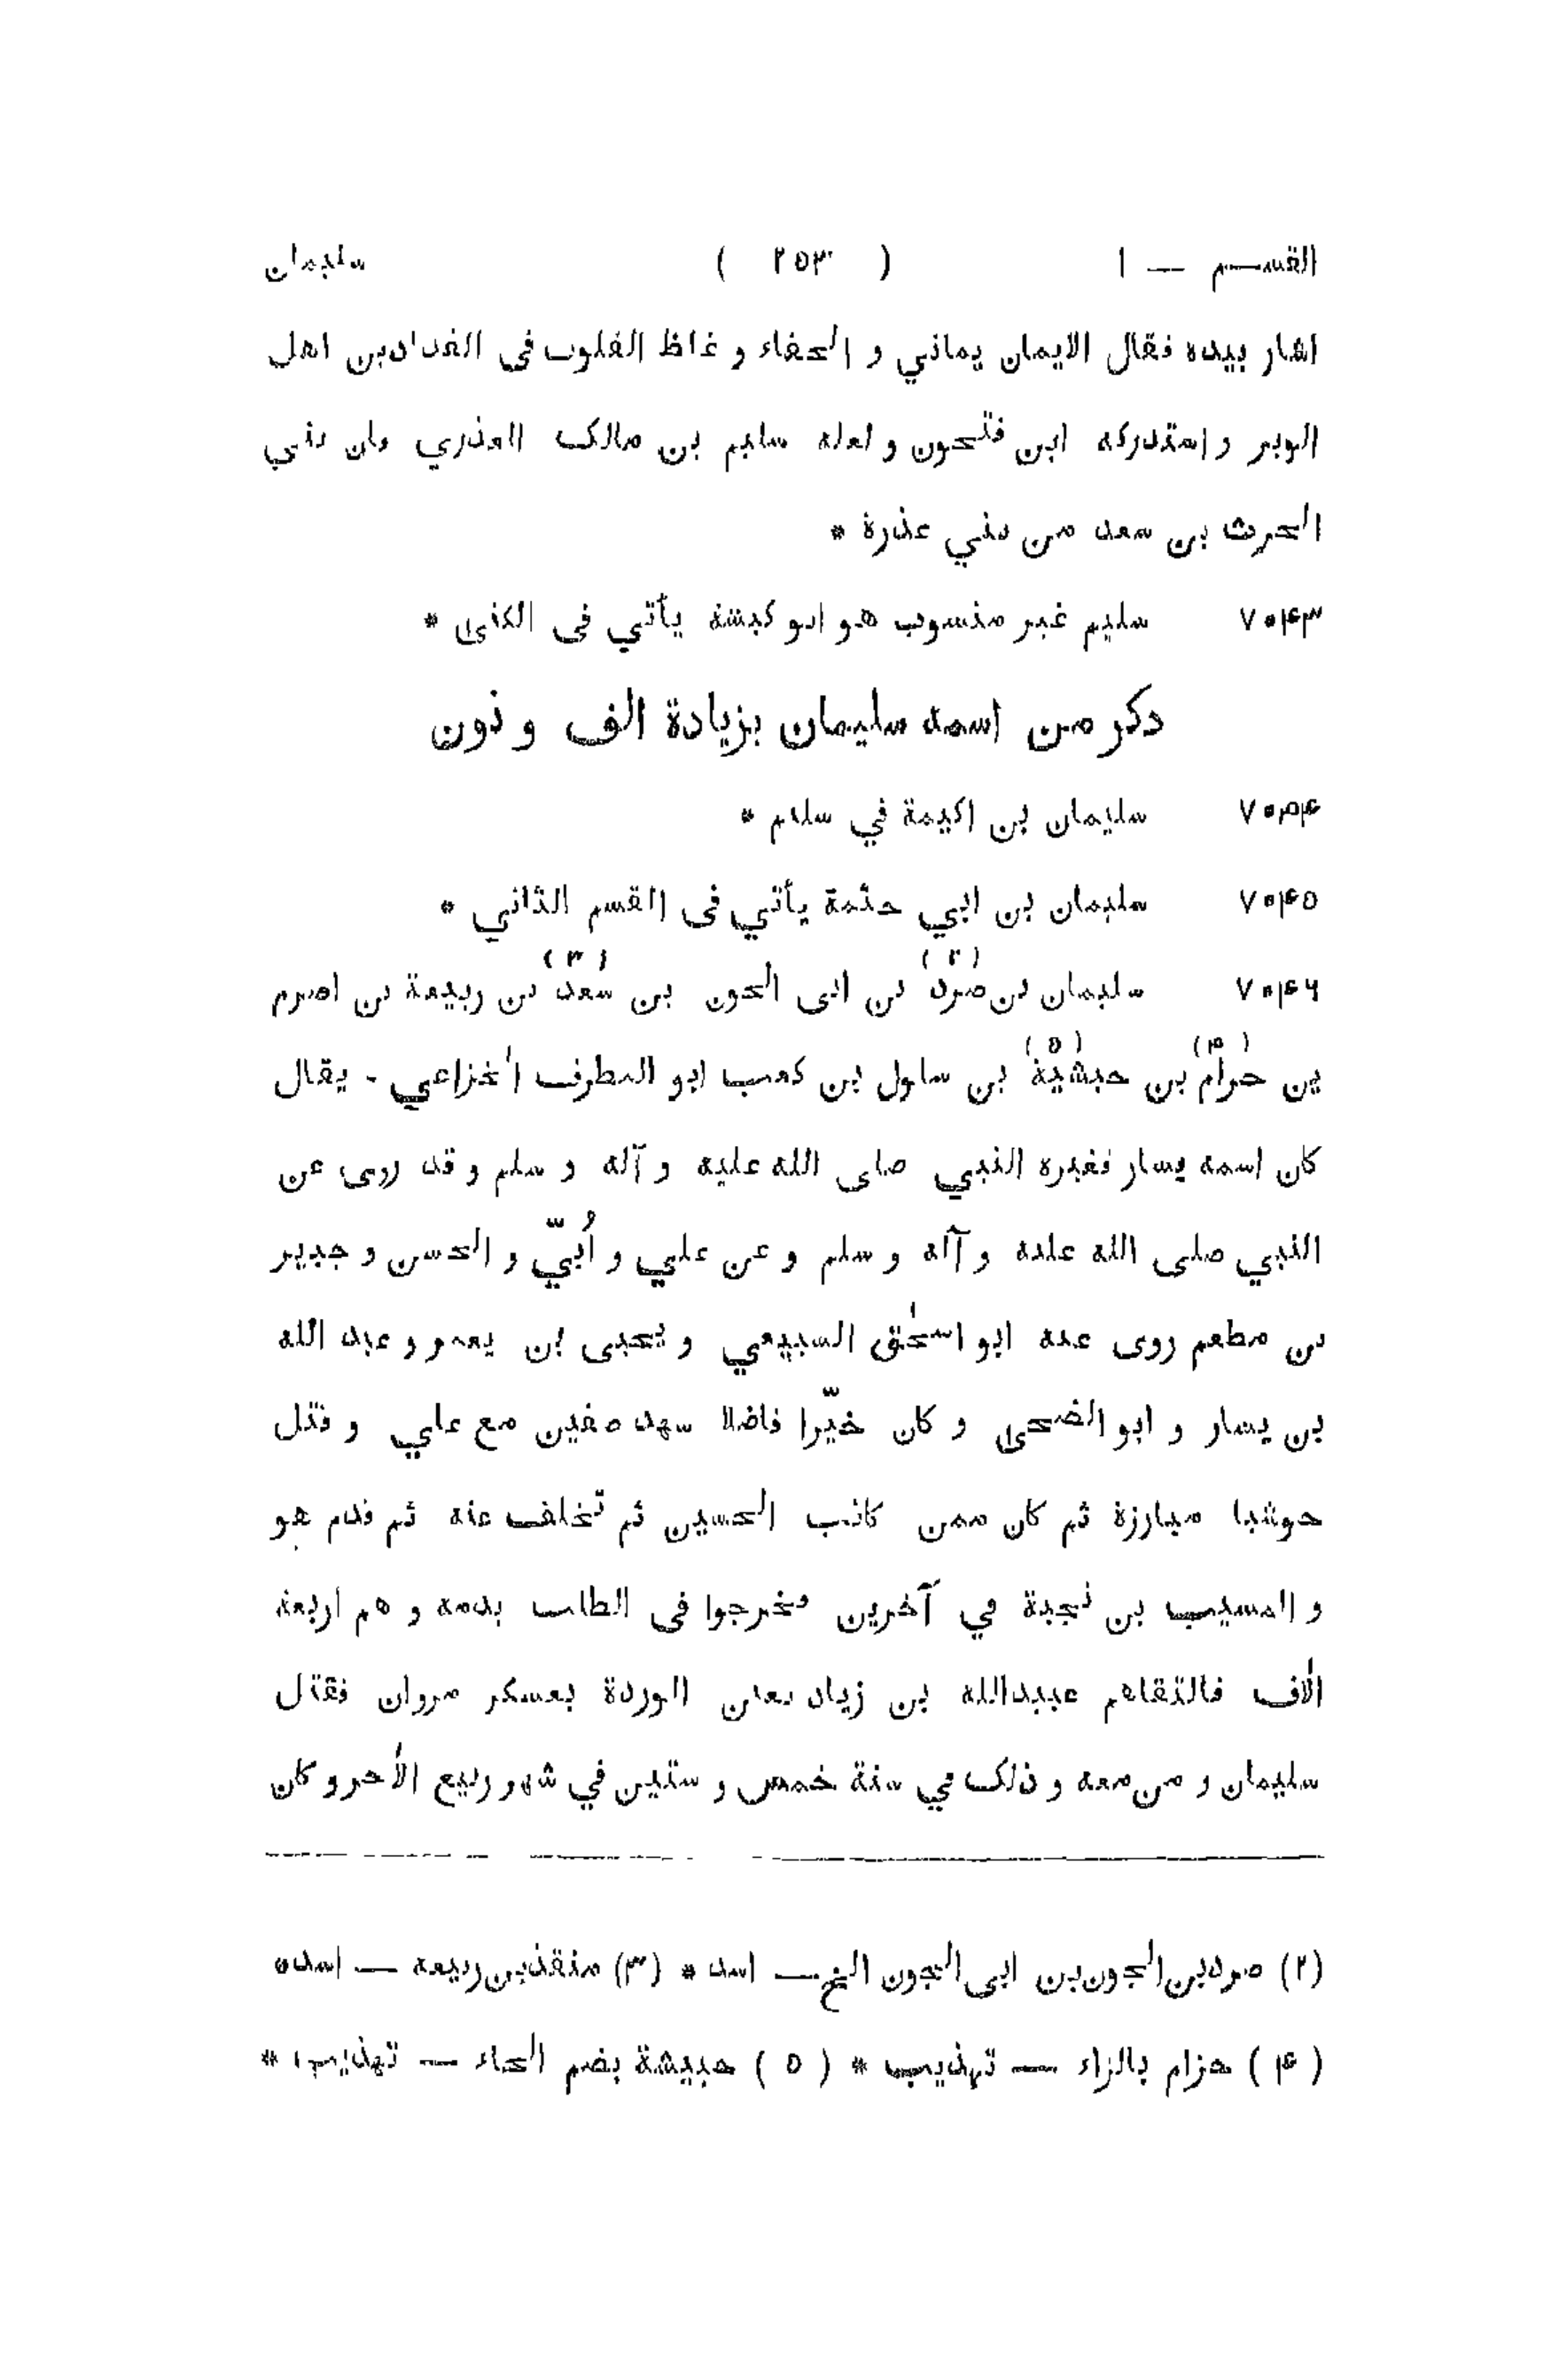 القسم — ١ ( ٢٥٣ ) سليمان
اشار بيده فقال الايمان يماني و الجفاء و غلظ القلوب فى الفدادين اهل
الوبر و استدركه ابن فتحون و لعله سليم بن مالك العذري فان بني
الحرث بن سعد من بني عذرة *
٧٠۴٣ سليم غير منسوب هو ابو كبشة يأتي فى الكنى *
ذكر من اسمه سليمان بزيادة الف و نون
٧٠۴۴ سليمان بن اكيمة في سليم *
٧٠۴٥ سليمان بن ابي حثمة يأتي فى القسم الثاني *
٧٠۴٦ سليمان بن صرد (٢) بن ابى الجون بن سعد (٣) بن ربيعة بن اصرم
بن حرام (۴) بن حبشية (٥) بن سلول بن كعب ابو المطرف الخزاعي - يقال
كان اسمه يسار فغيره النبي صلى الله عليه و آله و سلم و قد روى عن
النبي صلى الله عليه و آله و سلم و عن علي و أُبيّ و الحسن و جبير
بن مطعم روى عنه ابو اسحٰق السبيعي و يحيى بن يعمر و عبد الله
بن يسار و ابو الضحى و كان خيّرا فاضلا شهد صفين مع علي و قتل
حوشبا مبارزة ثم كان ممن كاتب الحسين ثم تخلف عنه ثم قدم هو
و المسيب بن نجبة في آخرين فخرجوا فى الطلب بدمه و هم اربعة
اٰلاف فالتقاهم عبيدالله بن زياد بعين الوردة بعسكر مروان فقتل
سليمان و من معه و ذلك في سنة خمس و ستين في شهر ربيع الاٰخر و كان
(٢) صرد بن الجون بن ابى الجون الخ — اسد * (٣) منقذ بن ربيعه — اسده
(۴) حزام بالزاء — تهذيب * (٥) حبيشة بضم الحاء — تهذيب *